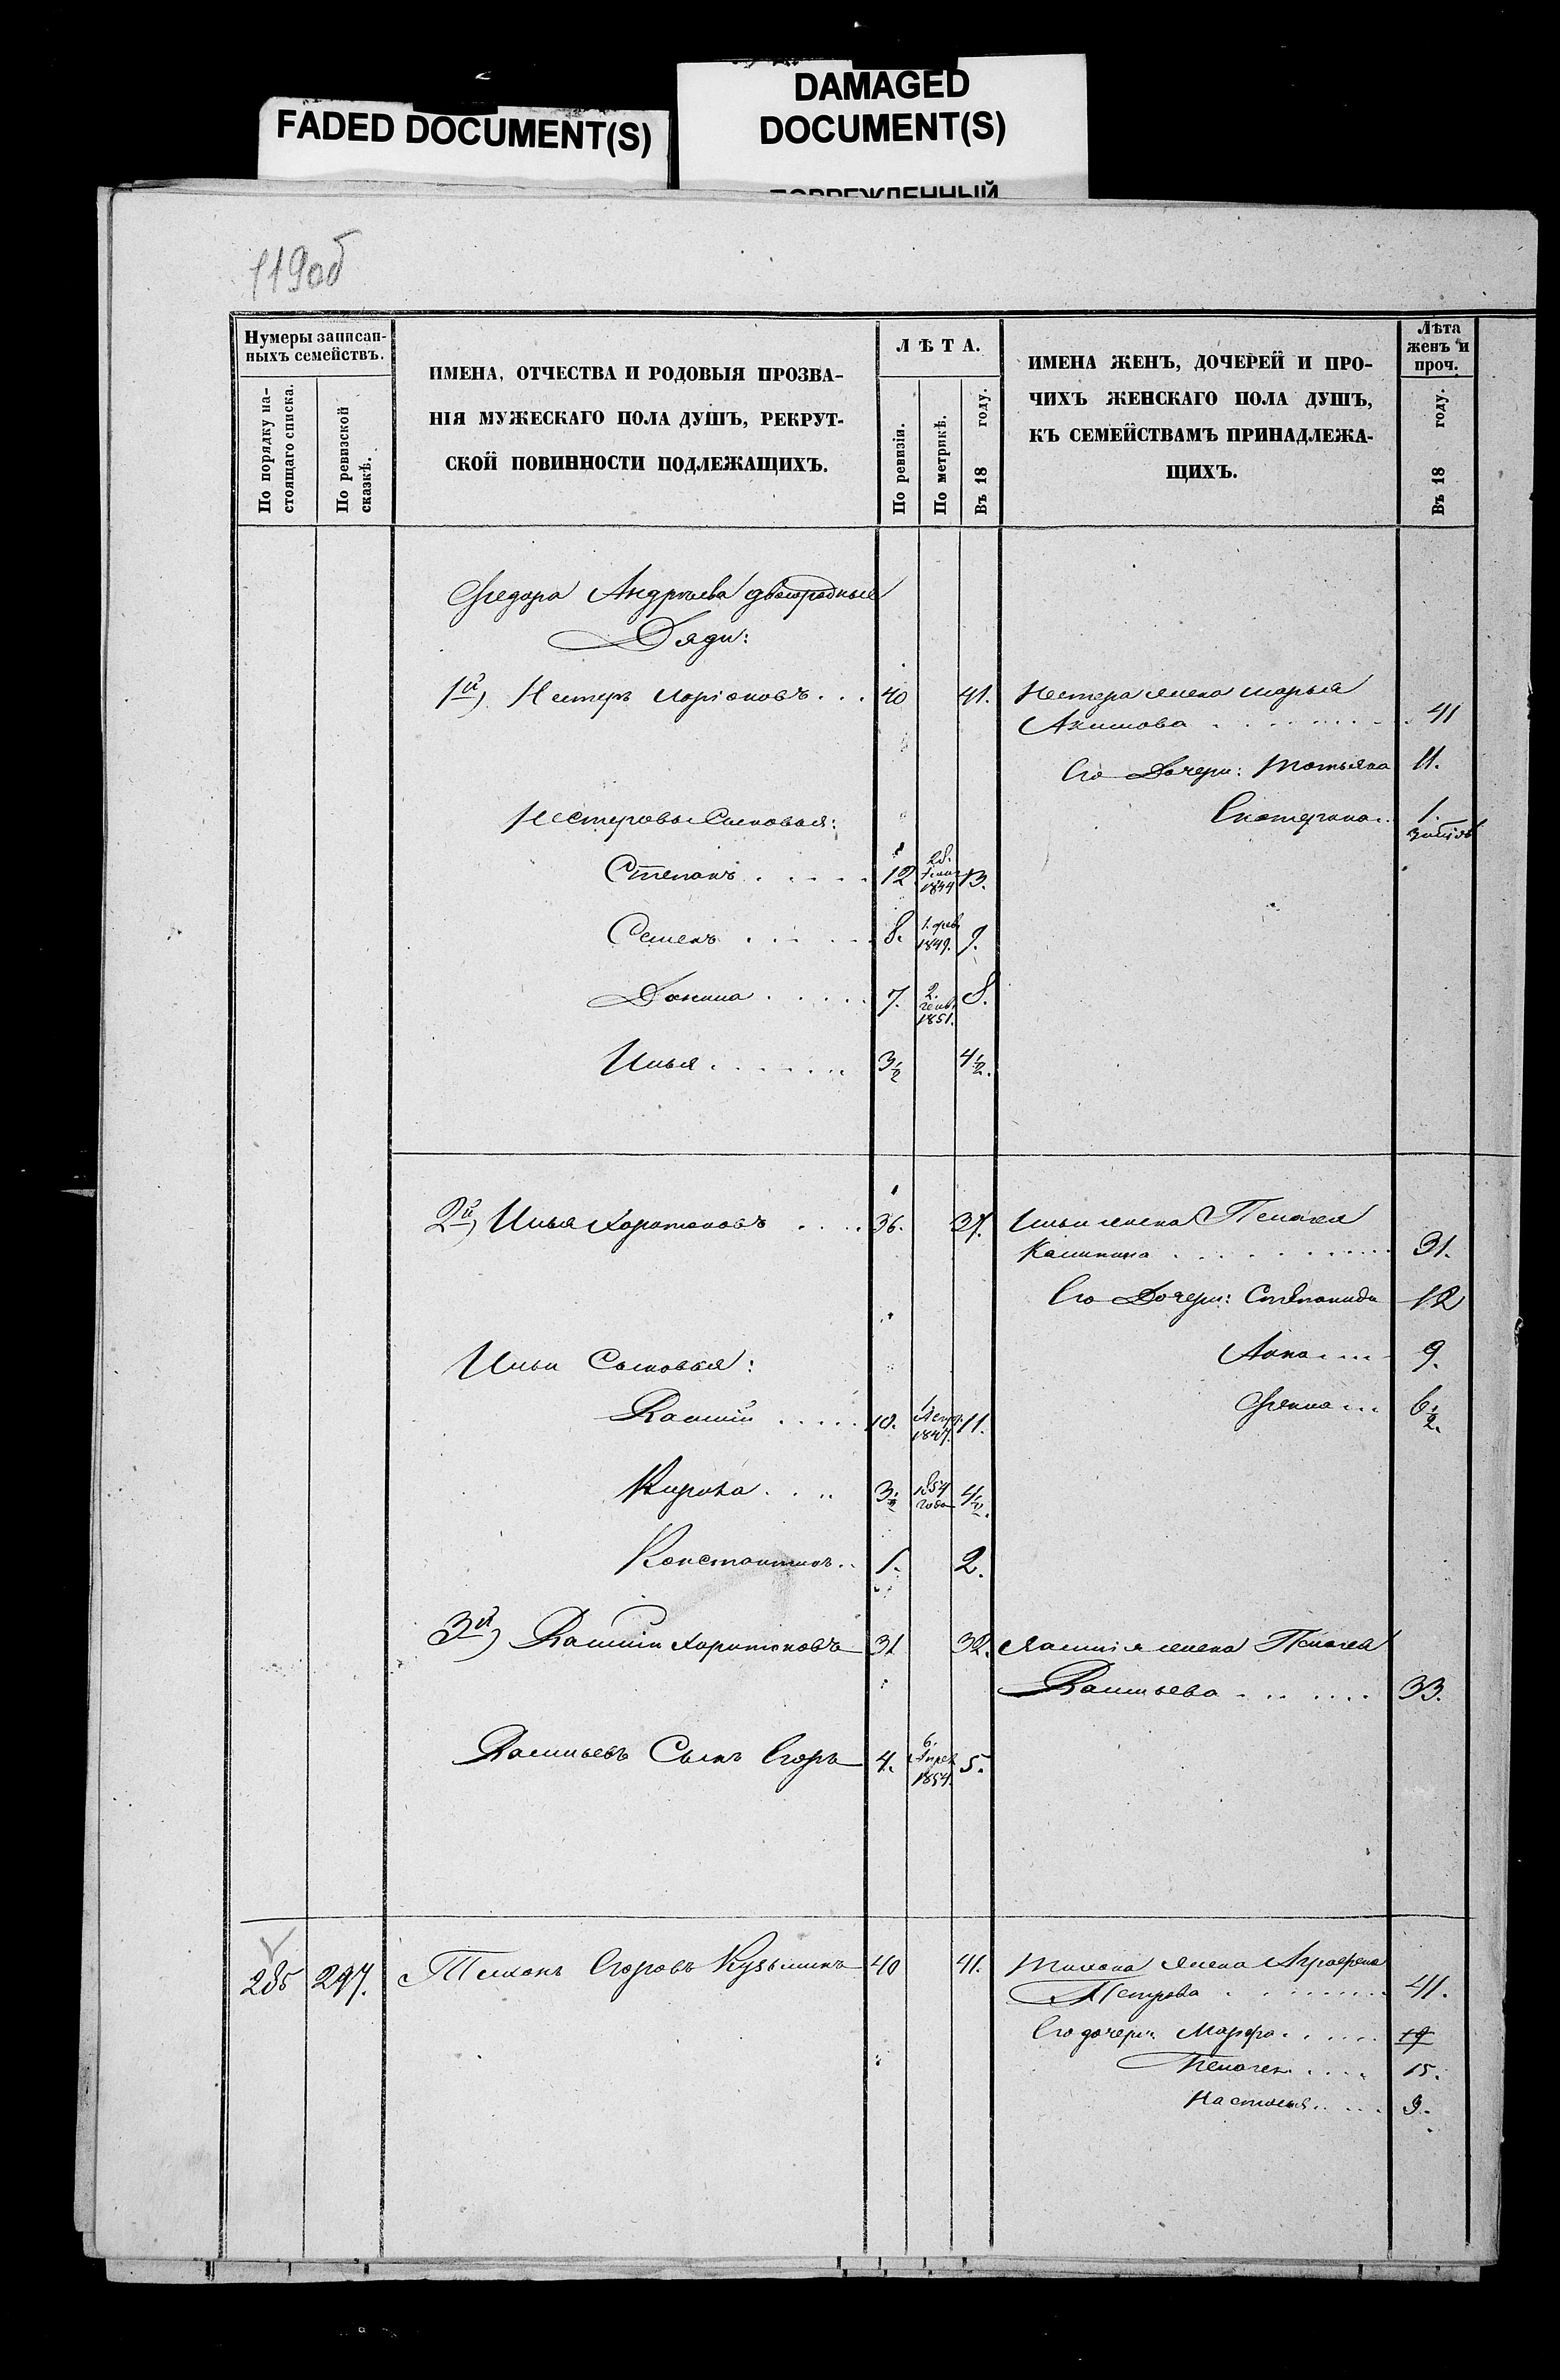 FADED DOCUMENT(S)
DAMAGED
DOCUMENT(S)
ПОВРЕЖДЕННЫЙ
119об
Нумеры записан-
ныхъ семействъ.
По порядку на-
стоящаго списка.
По ревизской
сказкѣ.
ИМЕНА, ОТЧЕСТВА И РОДОВЫЯ ПРОЗВА-
НІЯ МУЖЕСКАГО ПОЛА ДУШЪ, РЕКРУТ-
СКОЙ ПОВИННОСТИ ПОДЛЕЖАЩИХЪ.
ЛѢТА.
По ревизіи.
По метрикѣ.
Въ 18 году.
ИМЕНА ЖЕНЪ, ДОЧЕРЕЙ И ПРО-
ЧИХЪ ЖЕНСКАГО ПОЛА ДУШЪ,
КЪ СЕМЕЙСТВАМЪ ПРИНАДЛЕЖА-
ЩИХЪ.
Лѣта
женъ и
проч.
Въ 18 году.
Федора Андреева двоюродные
Дяди:
1й) Нестеръ . . . 40 41. Нестера жена Марья
Акимова . . . . 41
Его Дочери: Татьяна 11.
Нестеровы Сыновья: Екатерина . 1.
Степанъ . . . . 12. 28. 1844 13.
Семенъ . . . . 8. 1. фев 1849. 9.
. . . . 7. 2. 1851. 8.
Илья . . . . 3½ 4½.
2й) Илья Харитоновъ . . . 36. 37. Ильи жена Пелагея
Калинина . . . . 31.
Его Дочери: Степанида 12
Ильи Сыновья: Анна . . . . 9.
Василій . . . . 10. 1 1847. 11. Фекла . . . 6½.
Кирила . . . 3½ 1854 года 4½.
Константинъ . . 1. 2.
3й) Василій Харитоновъ 31 32. Василія жена Пелагея
Васильева . . . . 33.
Васильевъ Сынъ Егоръ 4. 6. Апрел 1854. 5.
285 297. Тихонъ Егоровъ Кузьминъ 40 41. Тихона жена Аграфена
Петрова . . . . 41.
Его дочери: Марфа . . . . 19
Пелагея . . . . 15.
Настасья . . . . 9.